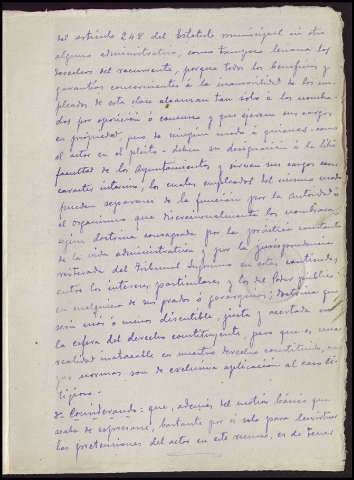 del artículo 248 del Estatuto municipal ni otra
alguna administrativa, como tampoco lesiona los
derechos del recurrente, porque todos los beneficios y
garantías concernientes á la inamovilidad de los em-
pleados de esta clase alcanzan tan sólo á los nombra-
dos por oposición ó concurso y que ejercen sus cargos
en propiedad, pero de ningún modo á quienes - como
el actor en el pleito - deben su designación á la libre
facultad de los Ayuntamientos y sirven sus cargos con
carácter interino, los cuales empleados del mismo modo
pueden separarse de la función por la autoridad ó
el organismo que discrecionalmente los nombrara,
según doctrina consagrada por la práctica constante
de la vida administrativa y por la jurisprudencia
reiterada del Tribunal Supremo en estas contiendas
entre los intereses particulares y los del Poder público
en cualquiera de sus grados ó jerarquías; doctrina que
será más ó menos discutible, justa y acertada en
la esfera del derecho constituyente, pero que es una
realidad inatacable en nuestro derecho constituido, cu-
yas normas son de exclusiva aplicación al caso li-
tigioso.
Considerando: que, además del motivo básico que
acaba de expresarse, bastante por sí solo para desvirtuar
las pretensiones del actor en este recurso, es de tener